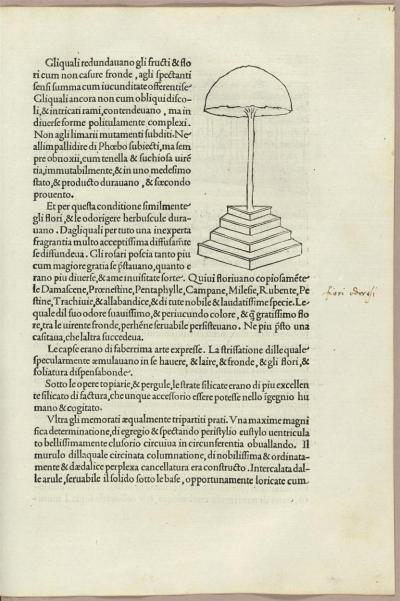 Gliquali redundauano gli fructi & flo
ri cum non casure fronde, agli spectanti
sensi summa cum iucunditate offerentise
Gliquali ancora non cum obliqui disco-
li, & intricati rami, contendeuano, ma in
diuerse forme politulamente complexi.
Non agli limarii mutamenti subditi. Ne
alli impallidire di Phœbo subiecti, ma sem
pre obnoxii, cum tenella & suchiosa uirē
tia, immutabilmente, & in uno medesimo
stato, & producto durauano, & fœcondo
prouento.
Et per questa conditione similmente
gli flori, & le odorigere herbuscule dura-
uano. Dagliquali per tuto una inexperta
fragrantia multo acceptissima diffusamēte
se diffundeua. Gli rosari poscia tanto piu
cum magiore gratia se p̄stauano, quanto e
rano piu diuerse, & ame inuisitate sorte. Quiui floriuano copiosamēte
le Damascene, Prœnestine, Pentaphylle, Campane, Milesie, Rubente, Pe
stine, Trachiuie, & allabandice, & di tute nobile & laudatissime specie. Le
quale dil suo odore suauissimo, & periucundo colore, & q̄ gratissimo flo
re, tra le uirente fronde, perhêne seruabile persisteuano. Ne piu p̄sto una
casitaua, che laltra succedeua.
Le capse erano di faberrima arte expresse. La strissatione dille quale
specularmente æmulauano in se hauere, & laire, & fronde, & gli flori, &
foliatura dispensabonde.
Sotto le opere topiarie, & pergule, le strate silicate erano di piu excellen
te silicato di factura, che unque accessorio essere potesse nello igegnio hu
mano & cogitato.
Vltra gli memorati æqualmente tripartiti prati. Vna maxime magni
fica determinatione, di egregio & spectando peristylio eustylo uentricula
to bellissimamente clusorio circuiua in circunferentia obuallando. Il
murulo dillaquale circinata columnatione, di nobilissima & ordinata-
mente & dædalice perplexa cancellatura era constructo. Intercalata dal-
le arule, seruabile il solido sotto le base, opportunamente loricate cum
fiori odorosi